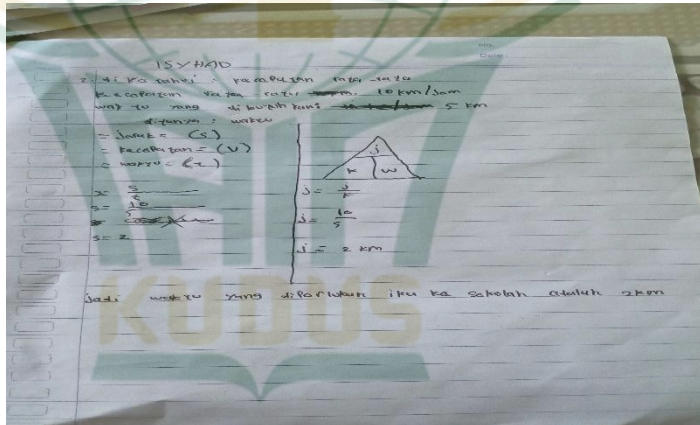 No.
Date
ISYHAD
2. di ketahui : kecepatan rata-rata
kecepatan rata rata 10 km/jam
waktu yang di butuhkan 5 km
ditanya : waktu
= jarak = (s)
= kecepatan = (V)
= waktu = (t)
s
t
10
5
s = 2
j
k w
j =
j = 10
5
j = 2 km
jadi waktu yang diperlukan iku ke sekolah adalah 2 km
KUDUS